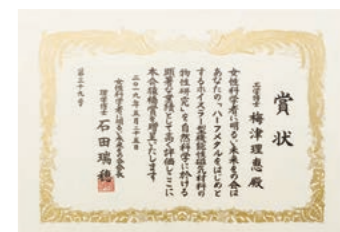 賞状
工学博士 梅津理恵殿
女性科学者に明るい未来をの会は
あなたの「ハーフメタルをはじめと
するホイスラー型機能性磁気材料の
物性研究」を自然科学に於ける
顕著な業績として高く評価しここに
本会猿橋賞を贈呈いたします
二〇一九年五月二十五日
女性科学者に明るい未来をの会会長
理学博士 石田瑞穂
第三十九号